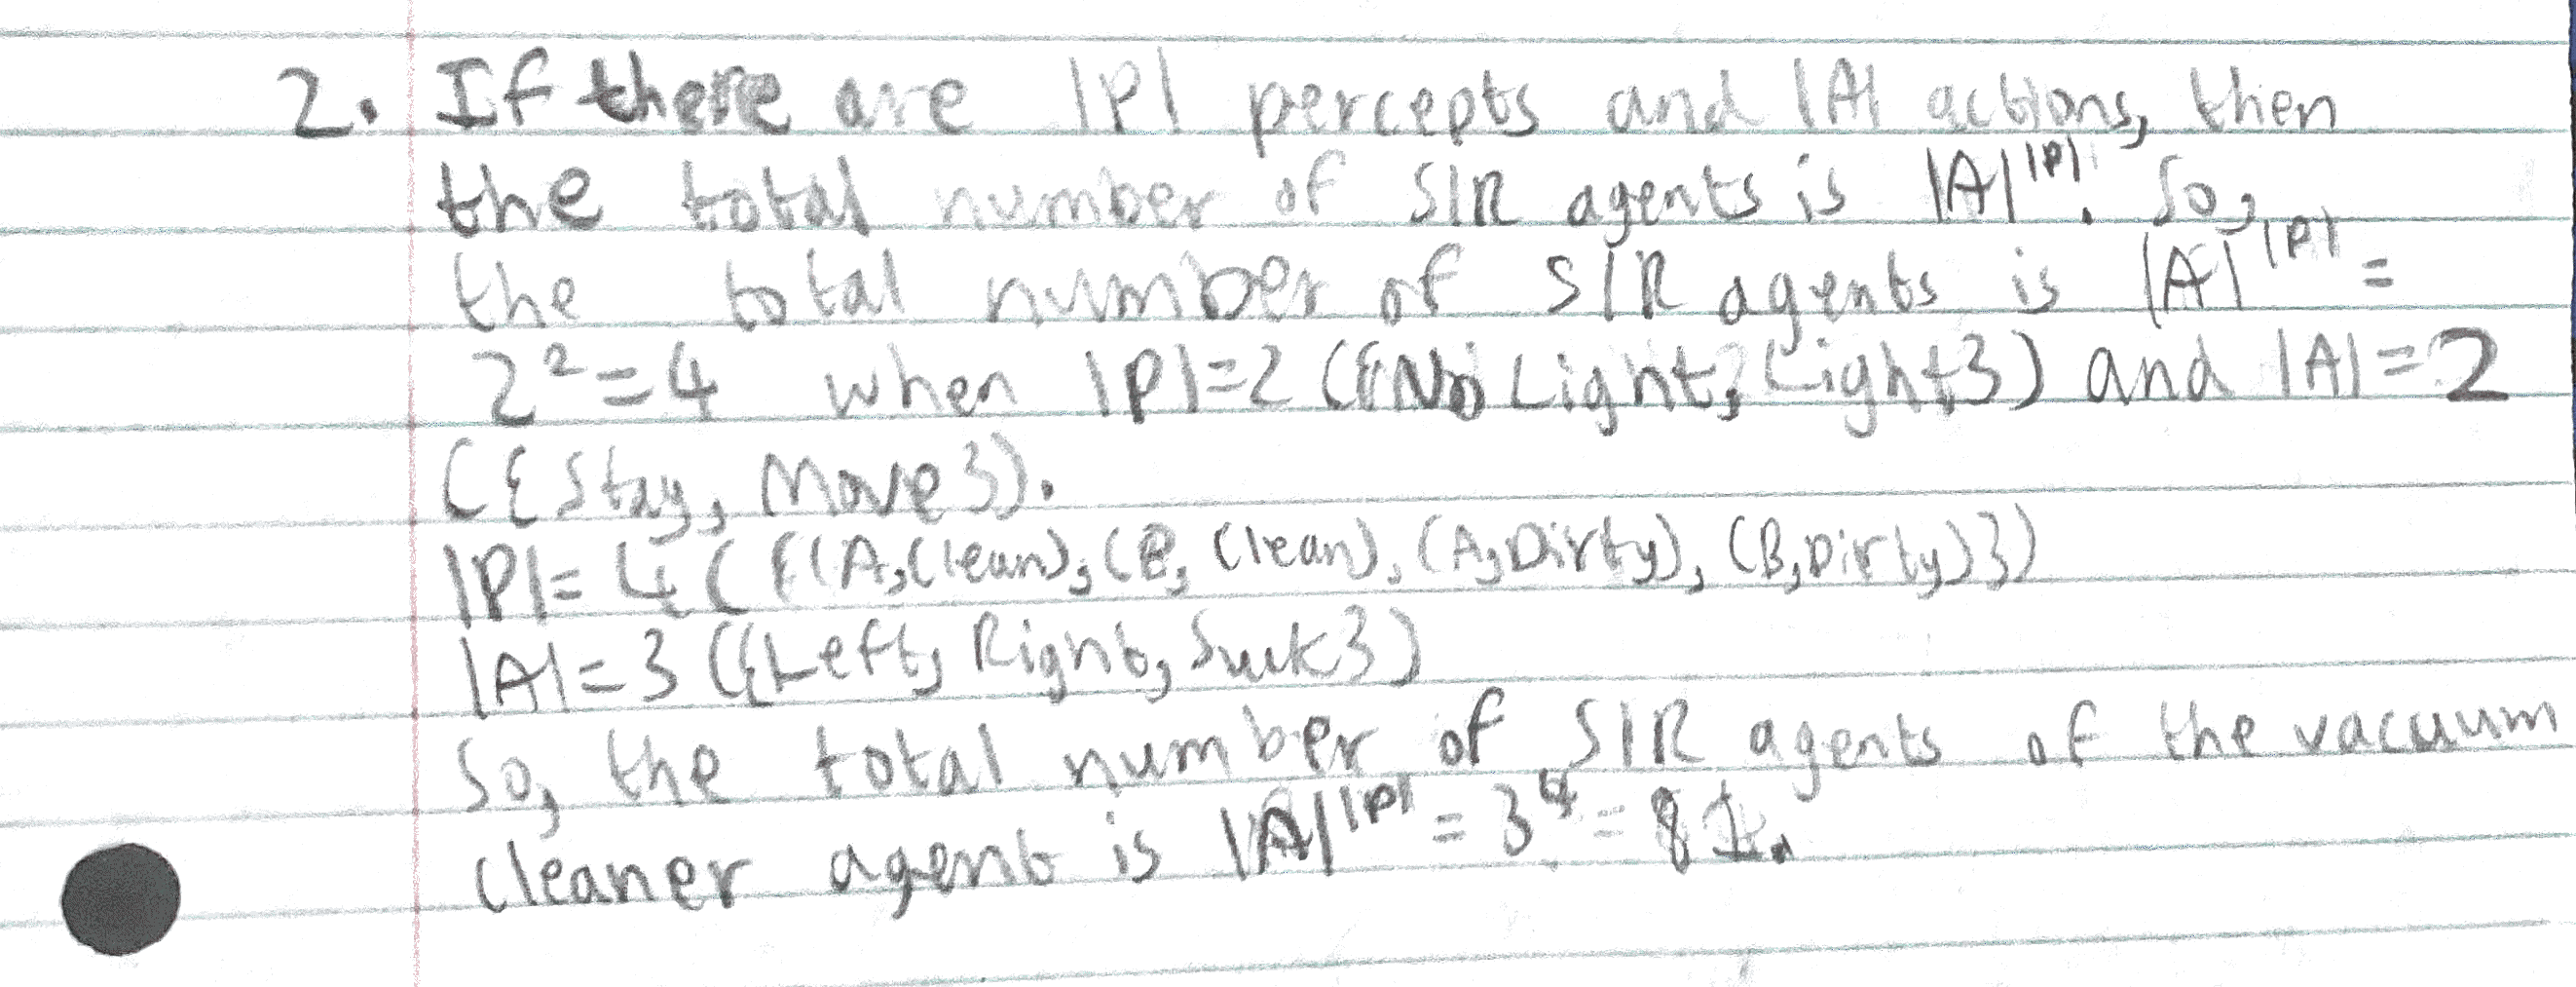 2. If there are |P| percepts and |A| actions, then
the total number of S/R agents is |A|^|P|. So,
the total number of S/R agents is |A|^|P| =
2² = 4 when |P|=2 ({No Light, Light}) and |A|=2
({Stay, Move}).
|P|= 4 ({(A, Clean), (B, Clean), (A, Dirty), (B, Dirty)})
|A|=3 ({Left, Right, Suck})
So, the total number of S/R agents of the vacuum
cleaner agent is |A|^|P| = 3⁴ = 81.